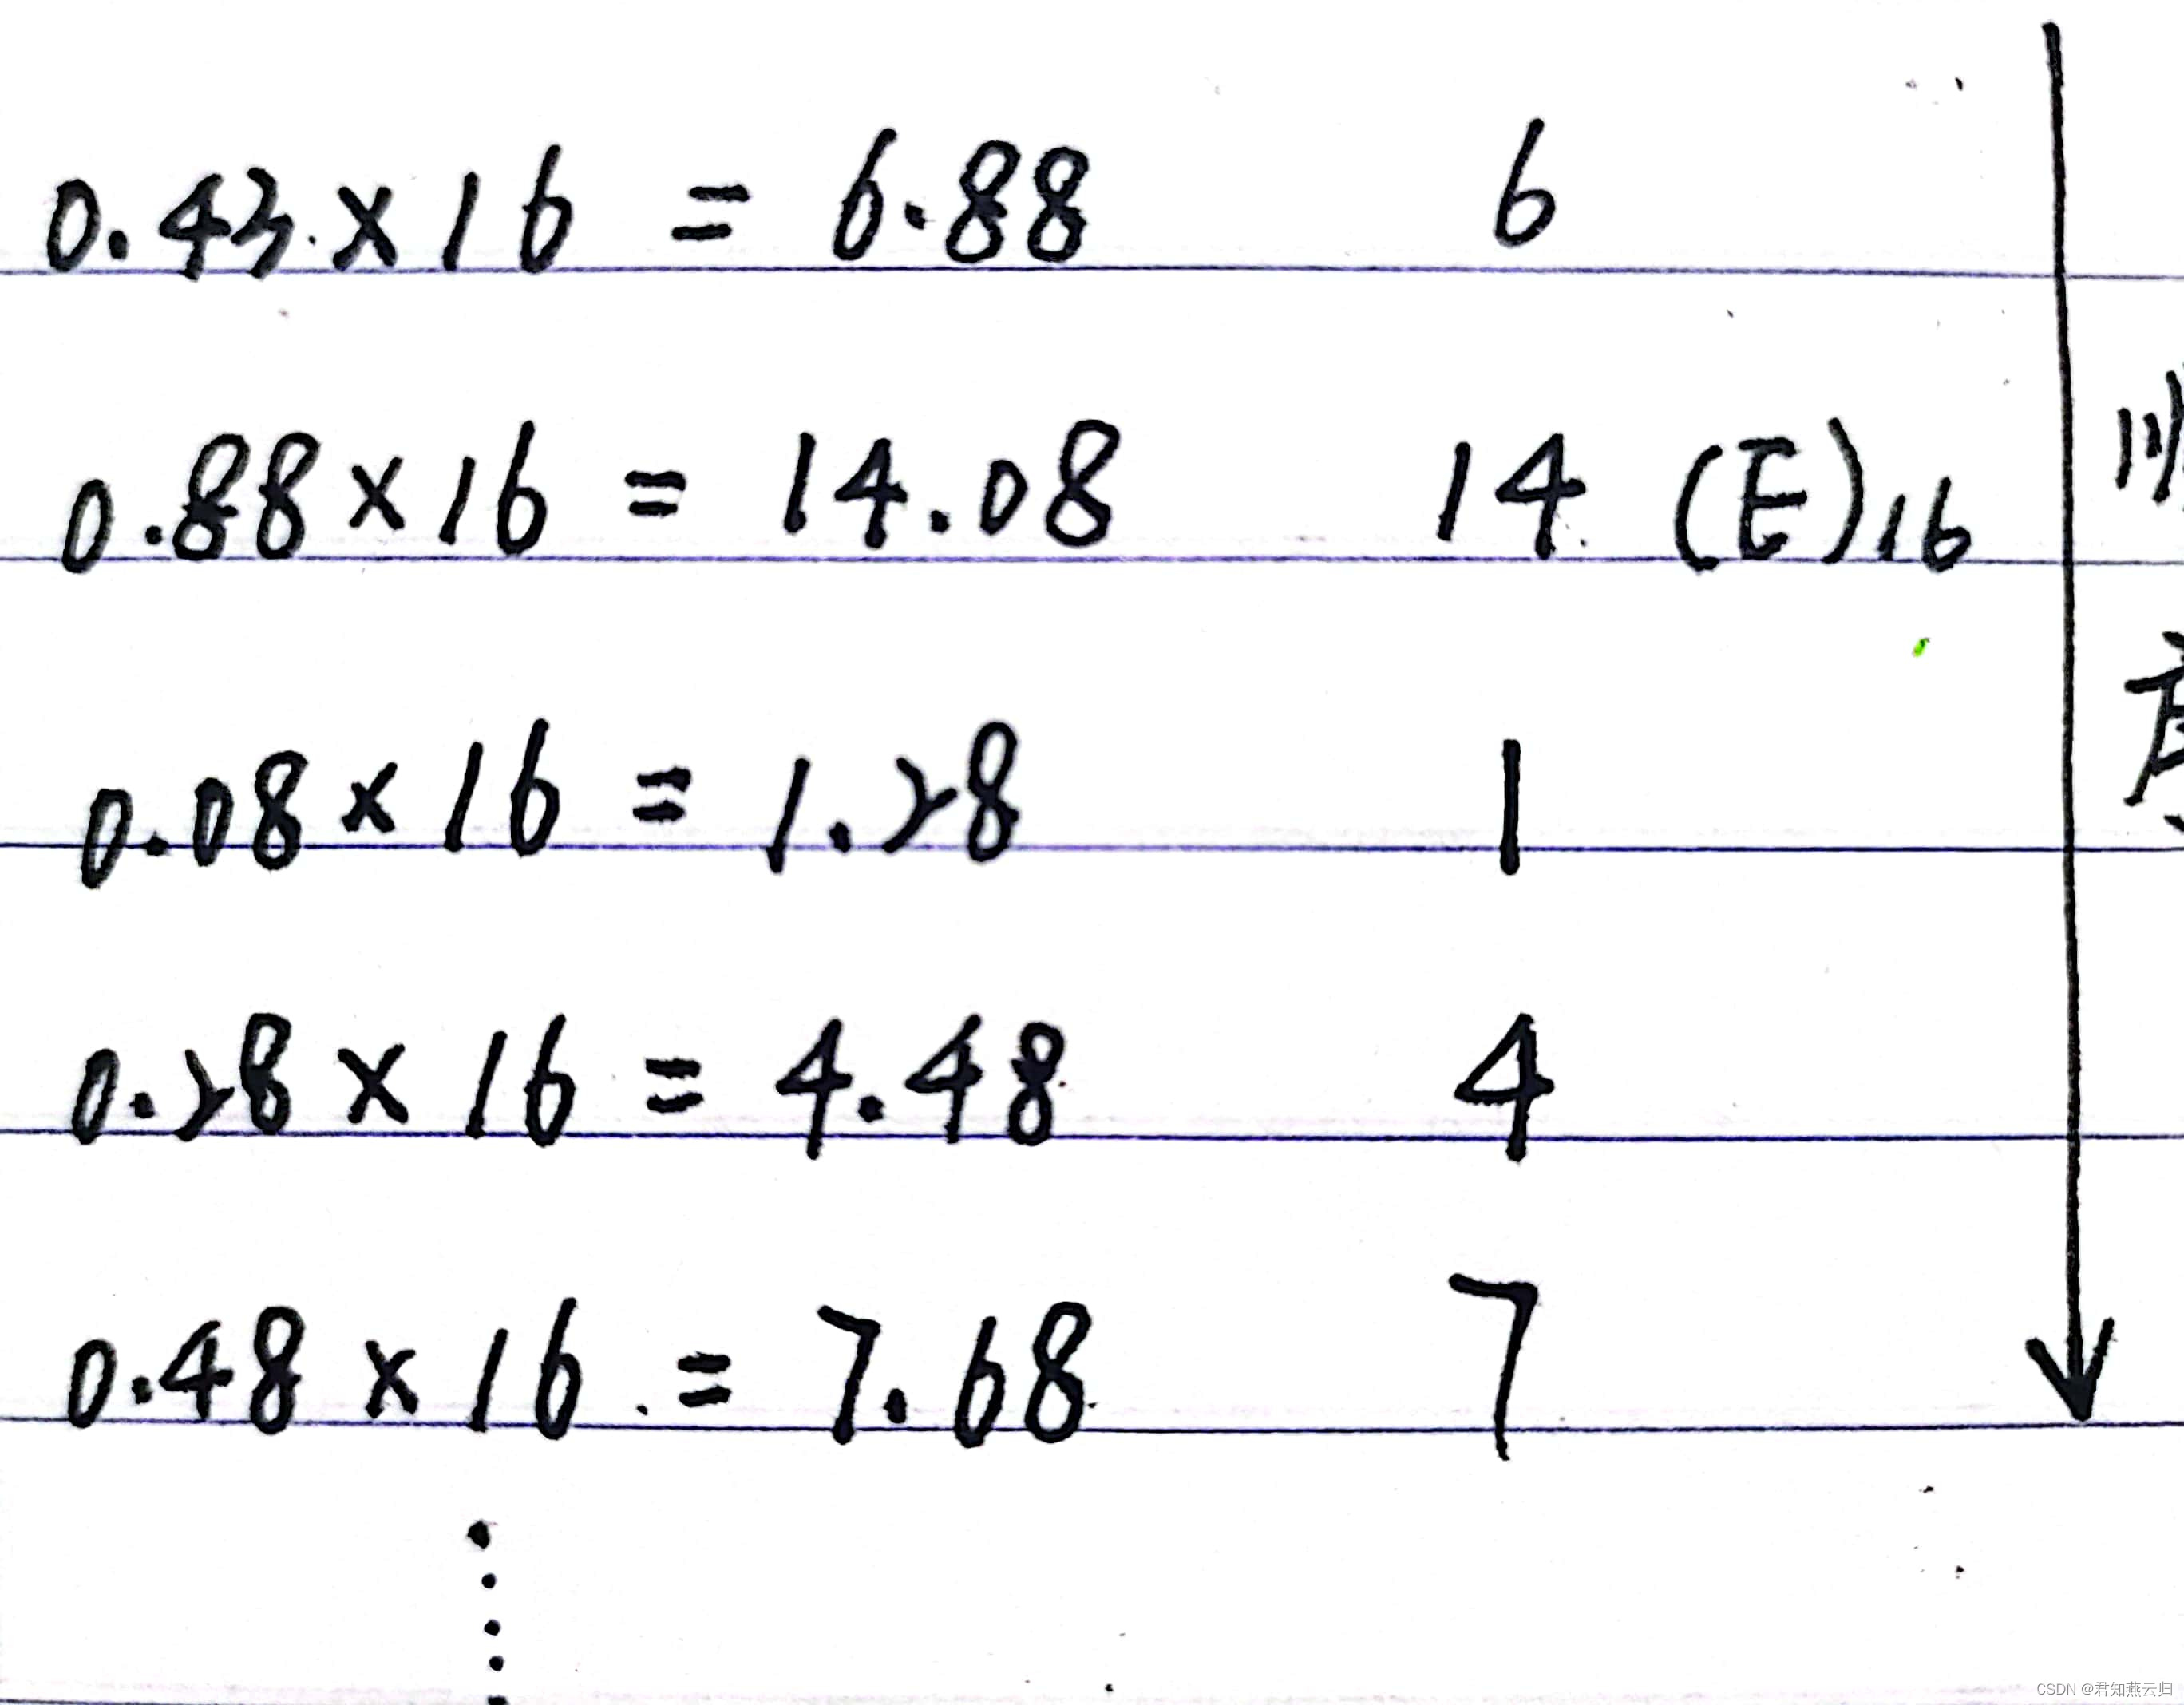 0.43×16 = 6.88 6
0.88×16 = 14.08 14 (E)16
0.08×16 = 1.28 1
0.28×16 = 4.48 4
0.48×16 = 7.68 7
CSDN @君知燕云归